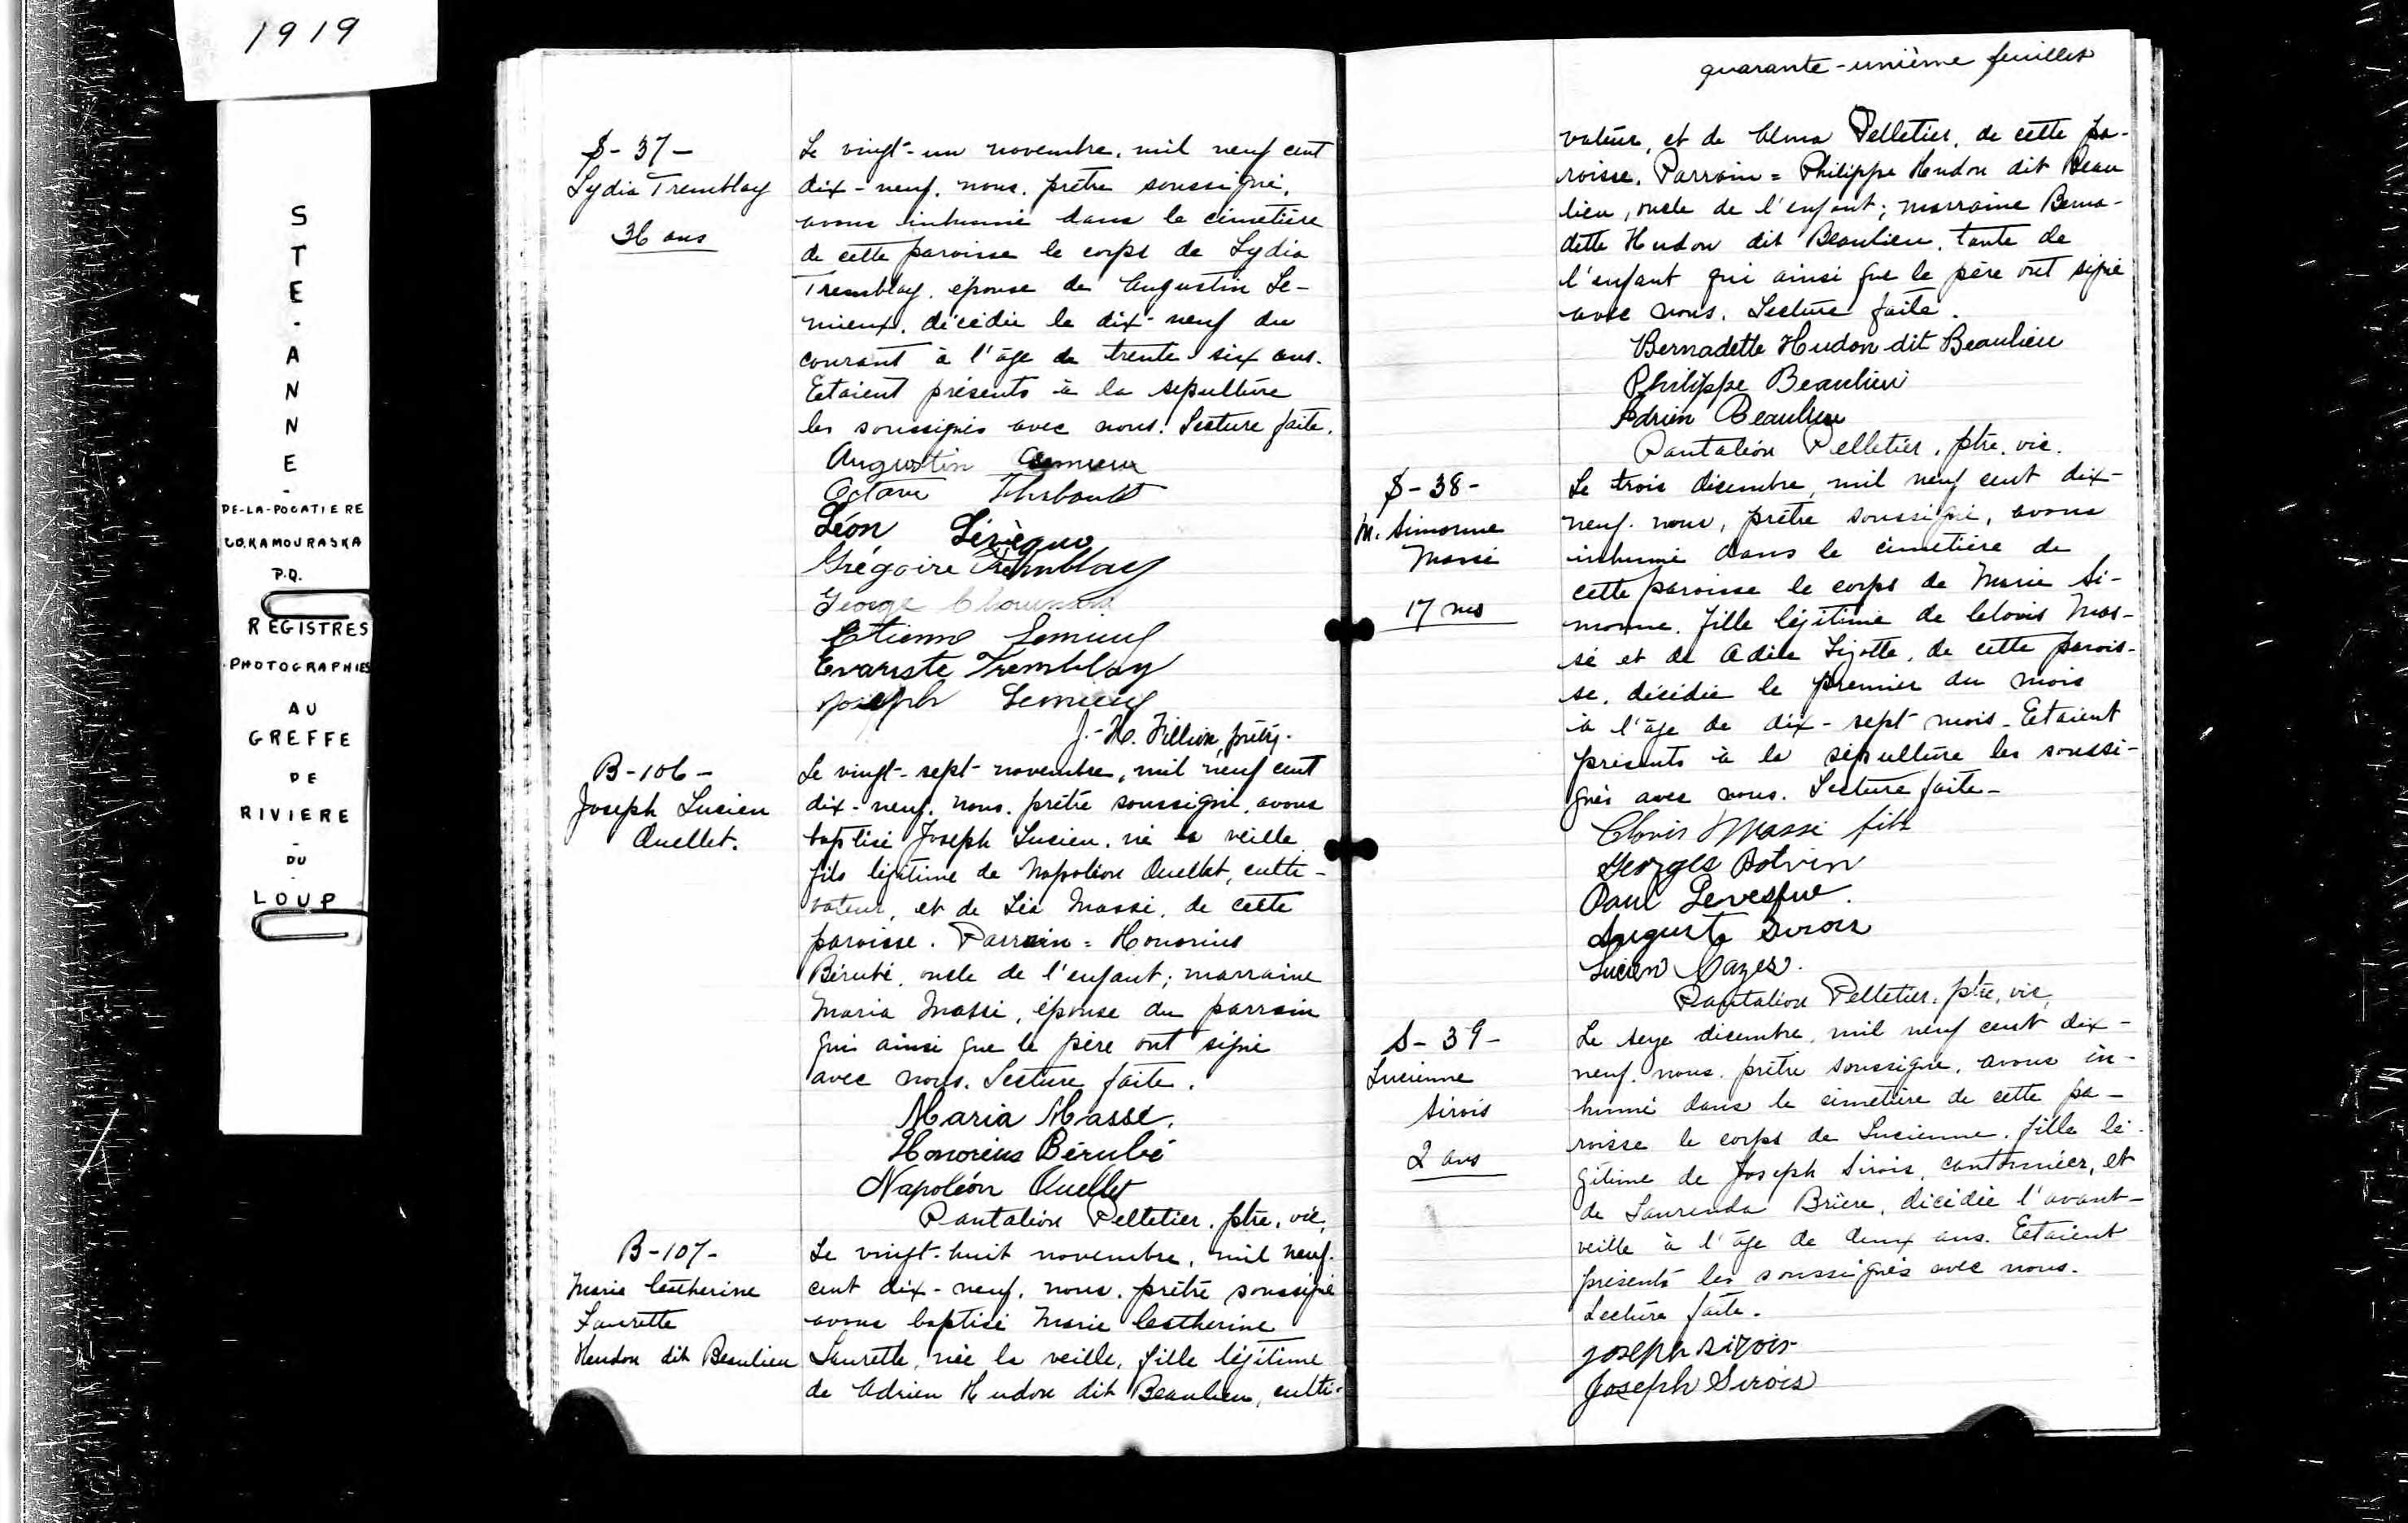 1919
STE-ANNE-
DE-LA-POCATIERE
CO. KAMOURASKA
P.Q.
REGISTRES
PHOTOGRAPHIES
AU
GREFFE
DE
RIVIERE
-
DU
-
LOUP
S-37-
Lydia Tremblay
36 ans
Le vingt-un novembre, mil neuf cent
dix-neuf, nous, prêtre soussigné,
avons inhumé dans le cimetière
de cette paroisse le corps de Lydia
Tremblay, épouse de Augustin Le-
mieux, décédée le dix-neuf du
courant à l'âge de trente-six ans.
Etaient présents à la sépulture
les soussignés avec nous. Lecture faite.
Augustin Lemieux
Octave Thiboutot
Léon Lévèque
Grégoire Tremblay
George Chouinard
Etienne Lemieux
Evariste Tremblay
Joseph Lemieux
J.-H. Fillion, prêtre.
B-106-
Joseph Lucien
Ouellet.
Le vingt-sept novembre, mil neuf cent
dix-neuf, nous, prêtre soussigné, avons
baptisé Joseph Lucien, né la veille
fils légitime de Napoléon Ouellet, culti-
vateur, et de Léa Massé, de cette
paroisse. Parrain = Honorius
Bérubé, oncle de l'enfant; marraine
Maria Massé, épouse du parrain
qui ainsi que le père ont signé
avec nous. Lecture faite.
Maria Massé.
Honorius Bérubé
Napoléon Ouellet
Pantaléon Pelletier, ptre, vic.
B-107-
Marie Catherine
Laurette
Hudon dit Beaulieu
Le vingt-huit novembre, mil neuf
cent dix-neuf, nous, prêtre soussigné
avons baptisé Marie Catherine
Laurette, née la veille, fille légitime
de Adrien Hudon dit Beaulieu, culti-
quarante-unième feuillet
vateur, et de Alma Pelletier, de cette pa-
roisse. Parrain = Philippe Hudon dit Beau
lieu, oncle de l'enfant; marraine Berna-
dette Hudon dit Beaulieu, tante de
l'enfant qui ainsi que le père ont signé
avec nous. Lecture faite.
Bernadette Hudon dit Beaulieu
Philippe Beaulieu
Adrien Beaulieu
Pantaléon Pelletier, ptre. vic.
S-38-
M. Simonne
Massé
17 ms
Le trois décembre, mil neuf cent dix-
neuf, nous, prêtre soussigné, avons
inhumé dans le cimetière de
cette paroisse le corps de Marie Si-
monne, fille légitime de Clovis Mas-
sé et de Adèle Lizotte, de cette parois-
se, décédée le premier du mois
à l'âge de dix-sept mois. Etaient
présents à la sépulture les soussi-
gnés avec nous. Lecture faite-
Clovis Massé fils
Georges Potvin
Paul Levesque.
Auguste Sirois
Lucien Mazer.
Pantaléon Pelletier, ptre, vic.
S-39-
Lucienne
Sirois
2 ans
Le seize décembre, mil neuf cent dix-
neuf, nous, prêtre soussigné, avons in-
humé dans le cimetière de cette pa-
roisse le corps de Lucienne, fille lé-
gitime de Joseph Sirois, cantonnier, et
de Laurenda Brière, décédée l'avant-
veille à l'âge de deux ans. Etaient
présents les soussignés avec nous.
Lecture faite.
Joseph Sirois
Joseph Sirois